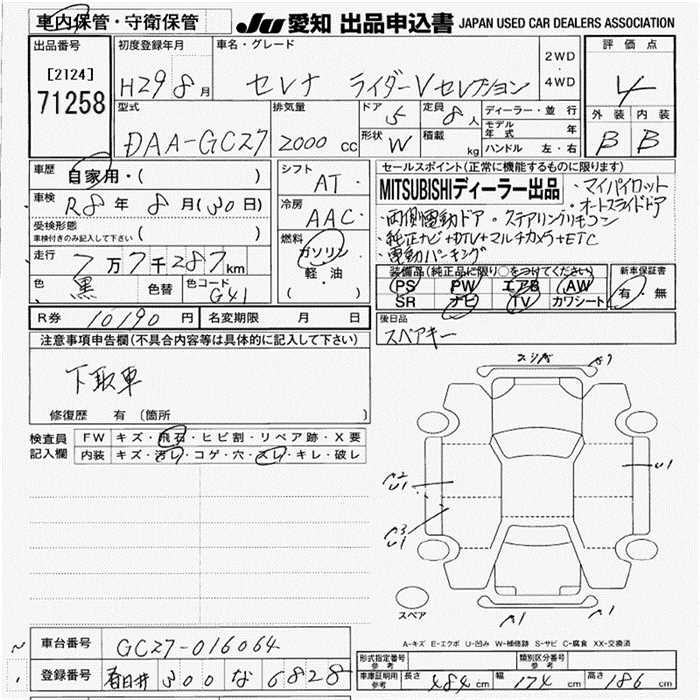 車内保管・守衛保管
JU 愛知 出品申込書 JAPAN USED CAR DEALERS ASSOCIATION
出品番号
[2124]
71258
初度登録年月
H29 8月
車名・グレード
セレナ ライダーVセレクション
2WD
・
4WD
評価点
4
外装 内装
B B
型式
DAA-GC27
排気量
2000 cc
ドア
5
定員
8人
形状
W
積載
kg
ディーラー・並行
モデル年式 年
ハンドル 左・右
車歴
自家用・( )
車検
R8年 8月(30日)
受検形態
車検付きのみ記入して下さい ( )
走行
7万7千287km
色
黒
色替
色コード
G41
シフト
AT・
冷房
AAC・
燃料
ガソリン
・
軽・油
( )
セールスポイント(正常に機能するものに限ります)
MITSUBISHIディーラー出品
・マイパイロット
・オートスライドドア
・両側電動ドア ・ステアリングリモコン
・純正ナビ+DTV+マルチカメラ+ETC
・電動パーキング
装備品(純正品に限り○をつけてください)
PS PW エアB AW
SR ナビ TV カワシート
新車保証書
有・無
R券 10190 円
名変期限 月 日
後日品
スペアキー
注意事項申告欄(不具合内容等は具体的に記入して下さい)
下取車
修復歴 有(箇所 )
検査員
記入欄
FW キズ・飛石・ヒビ割・リペア跡・X要
内装 キズ・汚レ・コゲ・穴・スレ・キレ・破レ
A2
U1
A3
U1
U1
スペア
A1
A1
A-キズ E-エクボ U-凹み W-補修跡 S-サビ C-腐食 XX-交換済
車台番号 GC27-016064
登録番号 春日井 300 な 6828
形式指定番号
参考
類別区分番号
参考
車庫証明用
参考
長さ 484 cm
幅 174 cm
高さ 186 cm